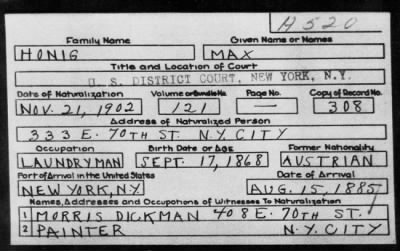 H520
Family Name Given Name or Names
HONIG MAX
Title and Location of Court
U. S. DISTRICT COURT, NEW YORK, N.Y.
Date of Naturalization Volume or Bundle No. Page No. Copy of Record No.
NOV. 21, 1902 121 — 308
Address of Naturalized Person
333 E. 70TH ST. N.Y. CITY
Occupation Birth Date or Age Former Nationality
LAUNDRYMAN SEPT. 17, 1868 AUSTRIAN
Port of Arrival in the United States Date of Arrival
NEW YORK, N.Y. AUG. 15, 1885
Names, Addresses and Occupations of Witnesses To Naturalization
1 MORRIS DICKMAN 408 E. 70TH ST.
2 PAINTER N.Y. CITY